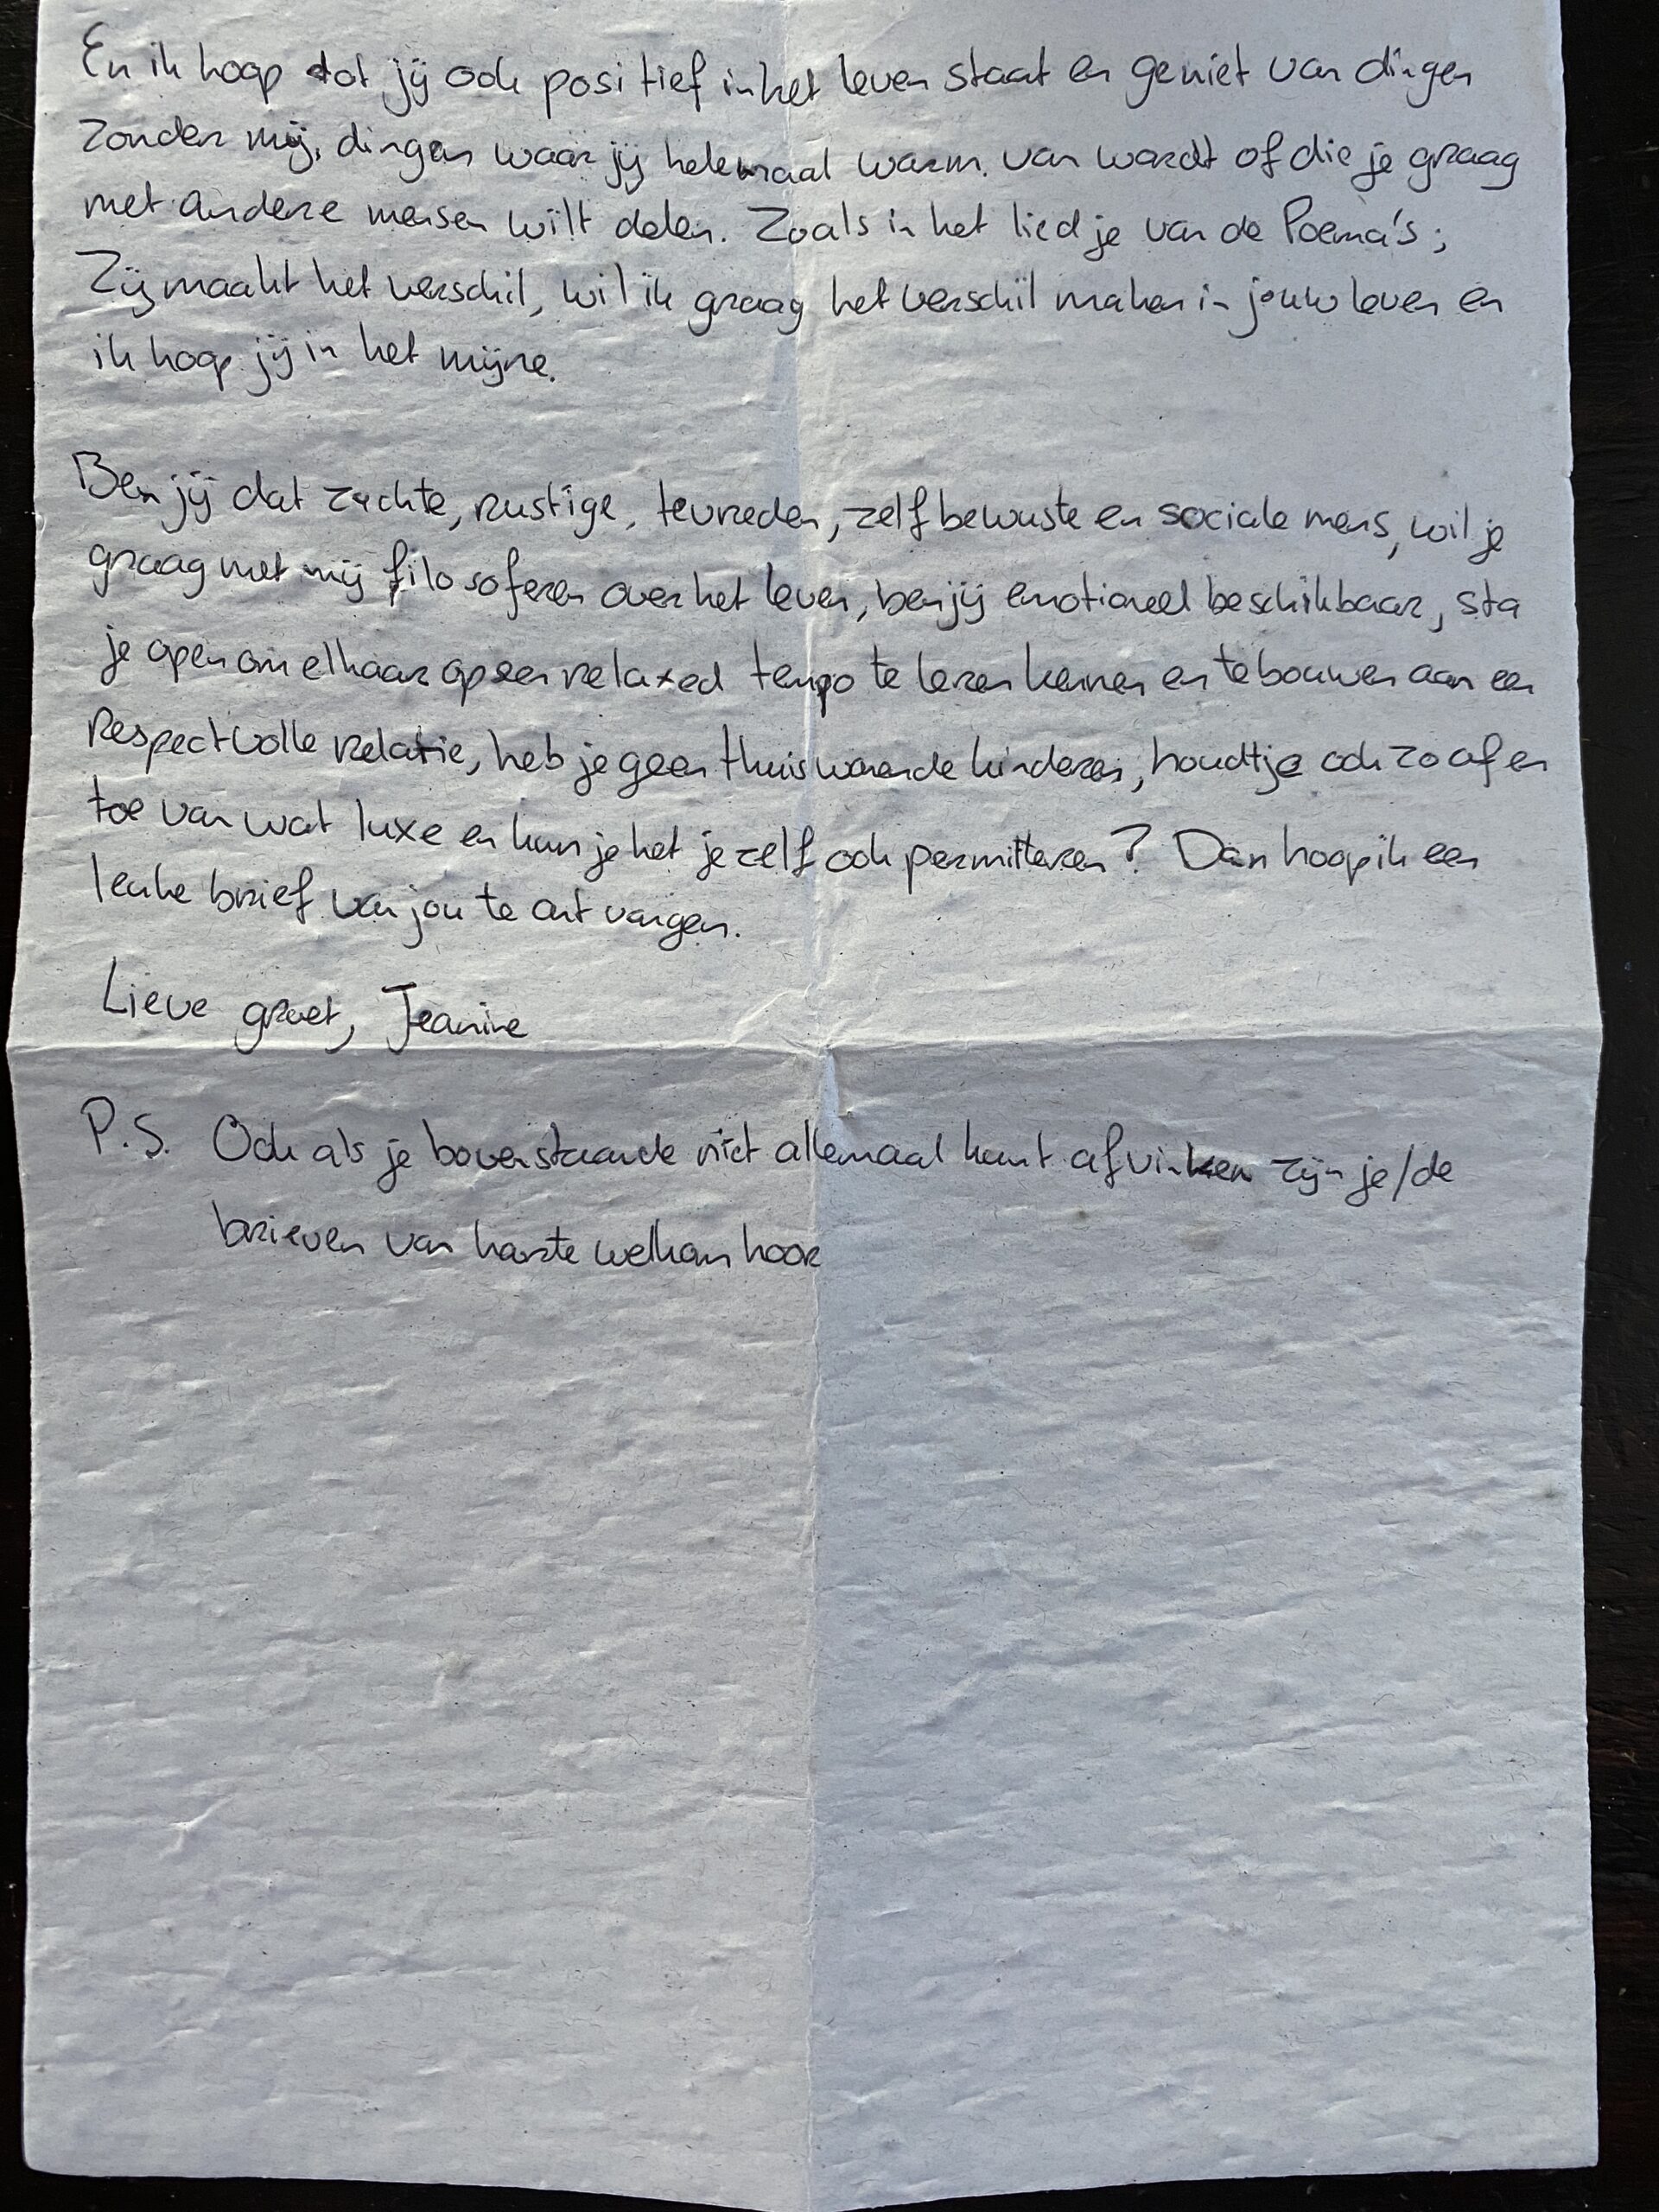 En ik hoop dat jij ook positief in het leven staat en geniet van dingen
zonder mij, dingen waar jij helemaal warm van wordt of die je graag
met andere mensen wilt delen. Zoals in het liedje van de Poema's;
Zij maakt het verschil, wil ik graag het verschil maken in jouw leven en
ik hoop jij in het mijne.
Ben jij dat zachte, rustige, tevreden, zelfbewuste en sociale mens, wil je
graag met mij filosoferen over het leven, ben jij emotioneel beschikbaar, sta
je open om elkaar op een relaxed tempo te leren kennen en te bouwen aan een
respectvolle relatie, heb je geen thuiswonende kinderen, houdt je ook zo af en
toe van wat luxe en kun je het jezelf ook permitteren? Dan hoop ik een
leuke brief van jou te ontvangen.
Lieve groet, Jeanine
P.S. Ook als je bovenstaande niet allemaal kunt afvinken zijn je/de
brieven van harte welkom hoor